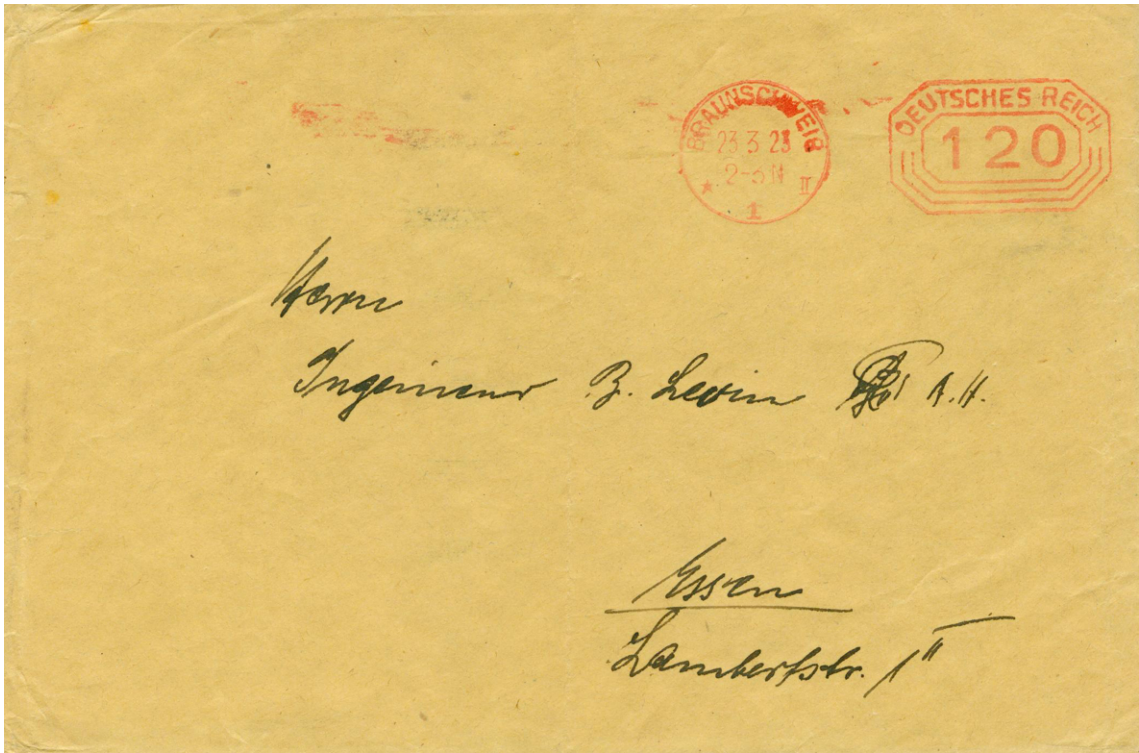 BRAUNSCHWEIG
23 3 23
2-5 N
★ II
1
DEUTSCHES REICH
120
Herrn
Ingenieur B. Levin A.H.
Essen
Lambertstr. 1 II